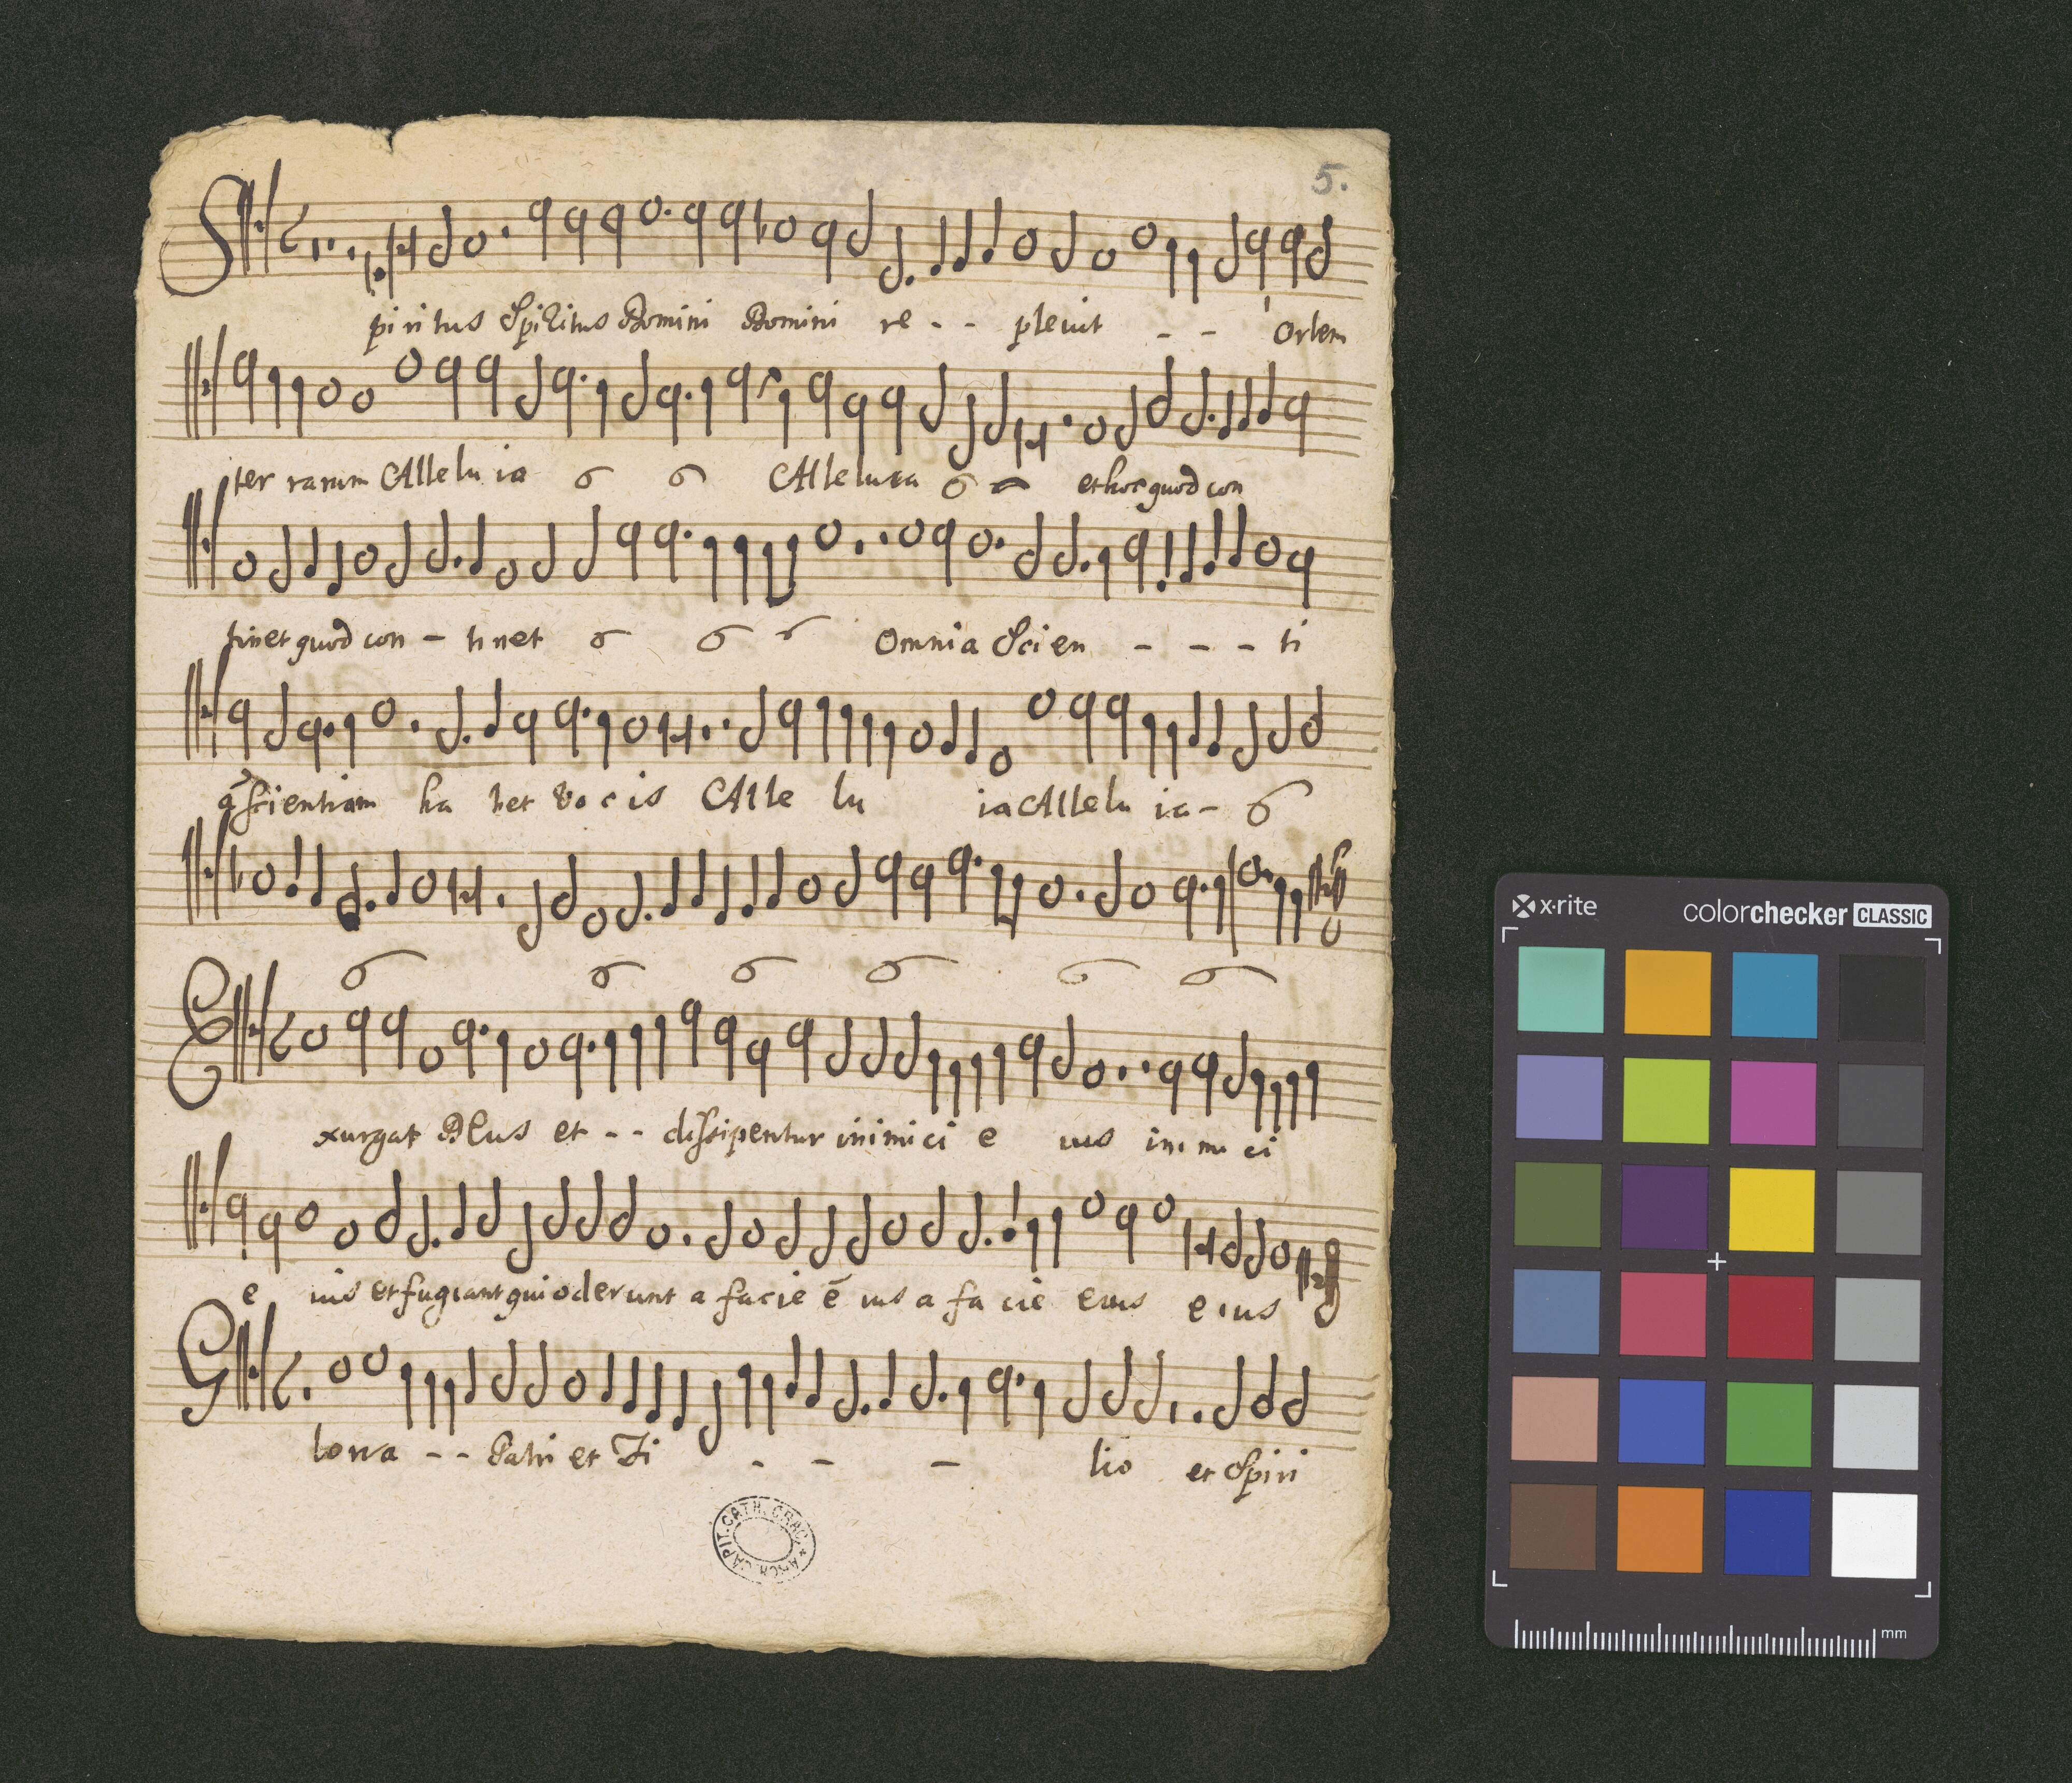 5.
Spiritus Spiritus Domini Domini re - - pleuit - - Orbem
ter rarum Allelu ia Alleluia et hoc quod con
tinet quod con - ti net Omnia Scien - - - ti
scientiam ha bet vo c is Alle lu ia Allelu ia -
Exurgat Deus et - - dissipentur inimici e ius inimi ci
e ius et fugiant qui oderunt a facie e ius a fa cie eius e ius
Gloria - - Patri et Fi - - - lio et Spiri
ARCH. CAPIT. CATH. CRAC. *
x·rite colorchecker CLASSIC
mm